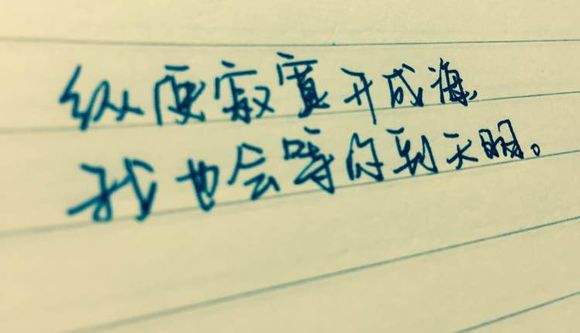 纵使寂寞开成海,
我也会等你到天明。